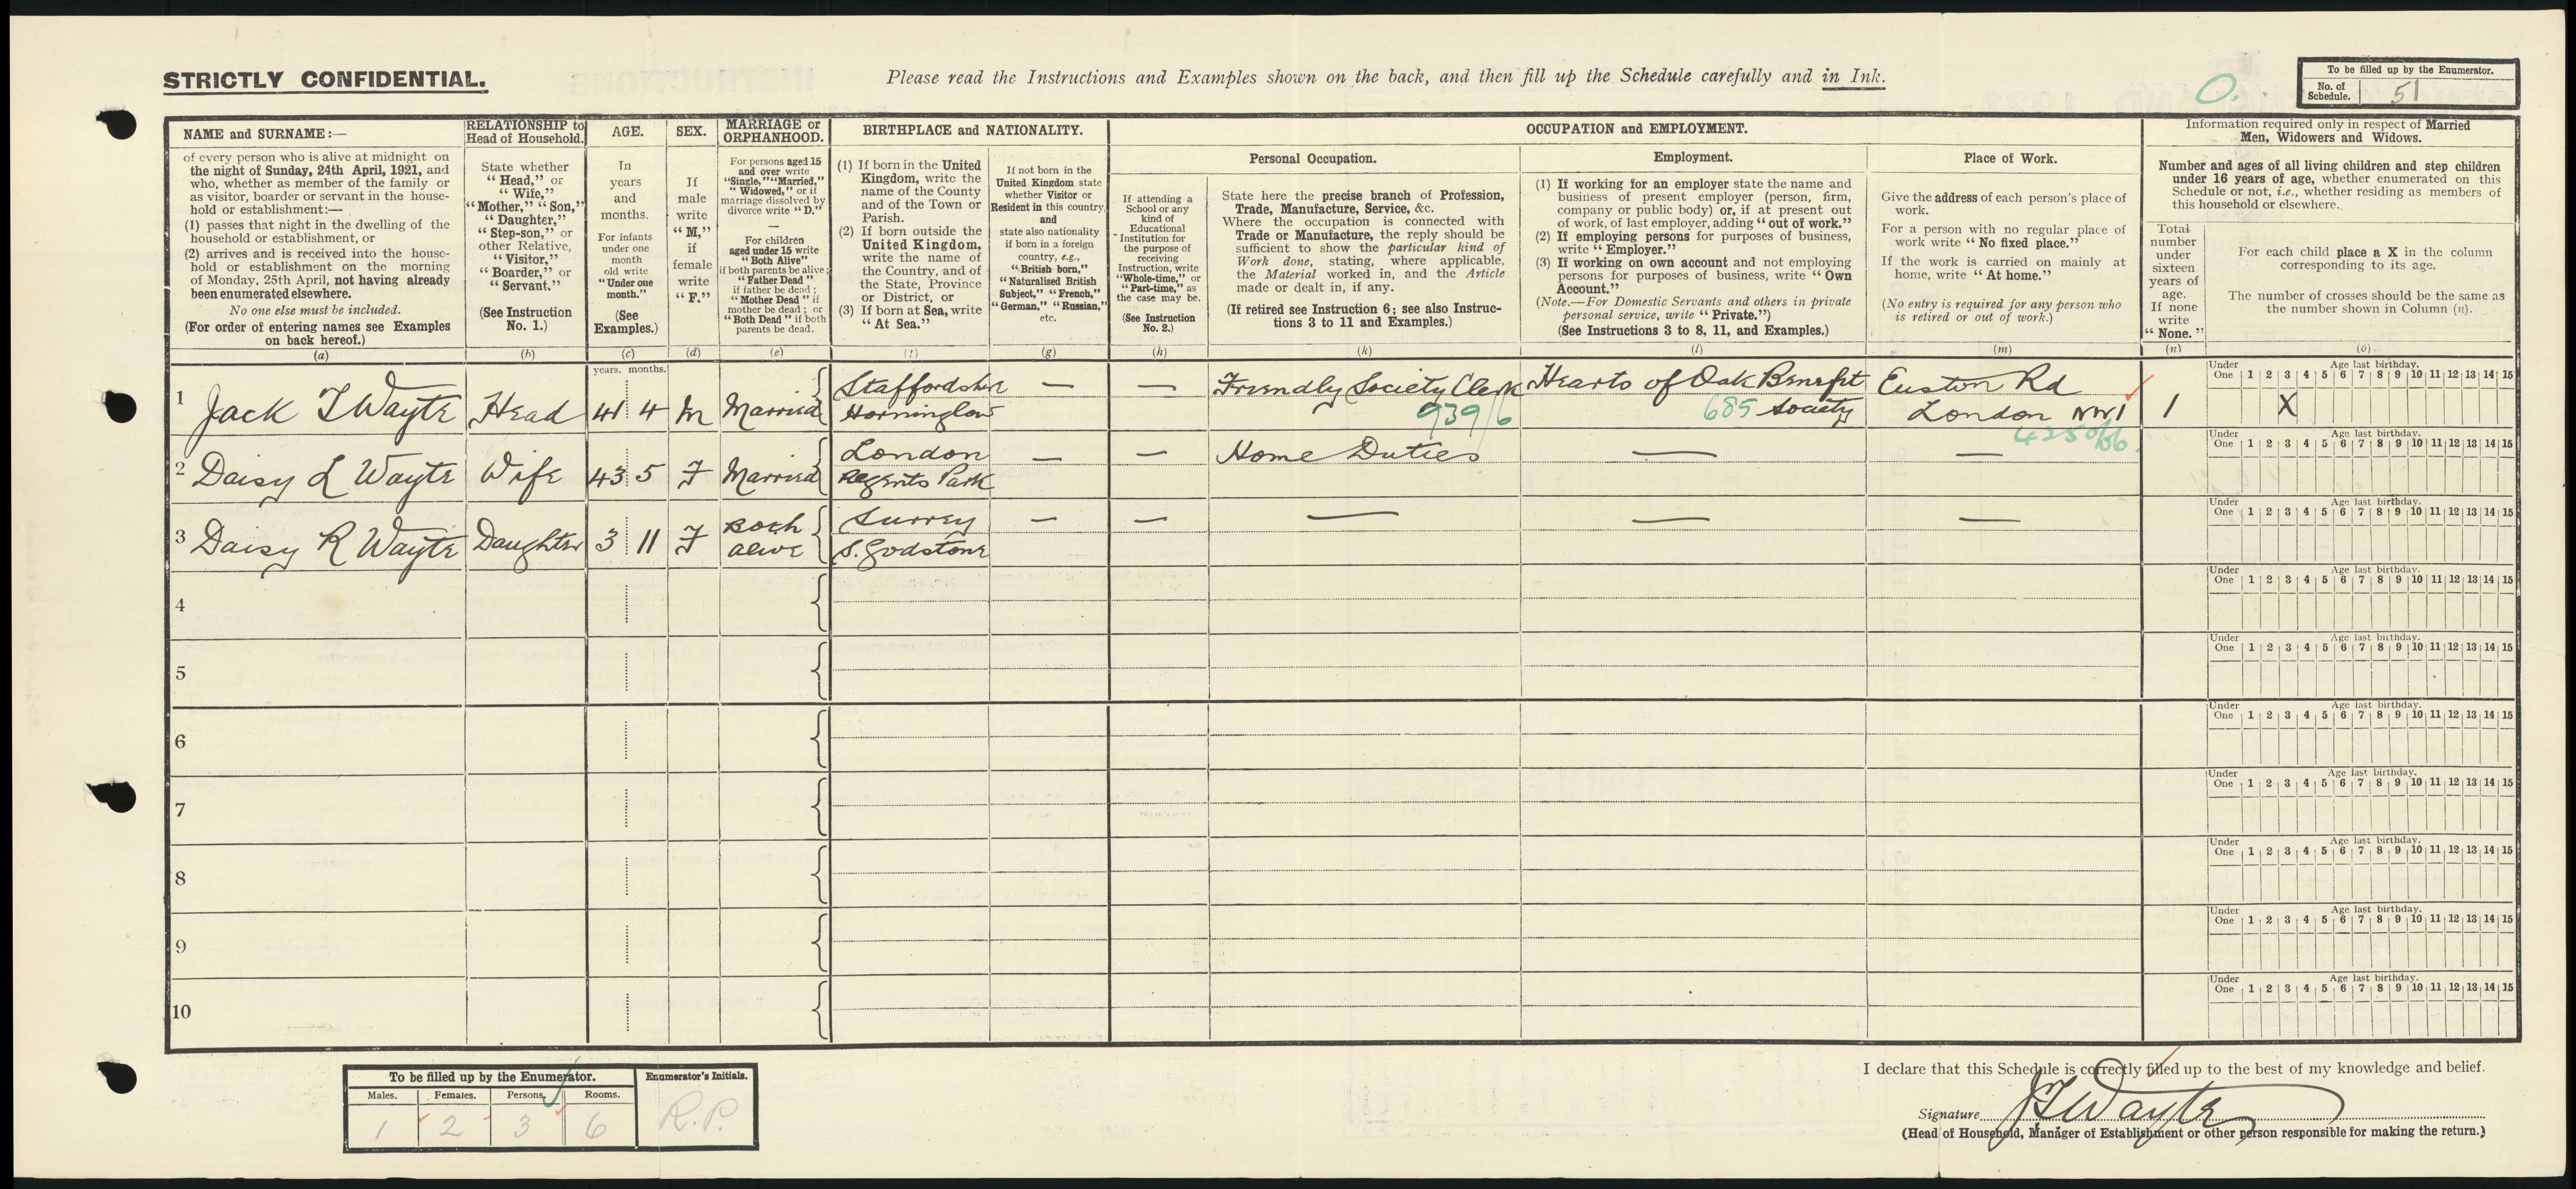 STRICTLY CONFIDENTIAL.
Please read the Instructions and Examples shown on the back, and then fill up the Schedule carefully and in Ink.
O.
To be filled up by the Enumerator.
No. of Schedule. 51
NAME and SURNAME:—
of every person who is alive at midnight on
the night of Sunday, 24th April, 1921, and
who, whether as member of the family or
as visitor, boarder or servant in the house-
hold or establishment:—
(1) passes that night in the dwelling of the
household or establishment, or
(2) arrives and is received into the house-
hold or establishment on the morning
of Monday, 25th April, not having already
been enumerated elsewhere.
No one else must be included.
(For order of entering names see Examples
on back hereof.)
(a)
RELATIONSHIP to
Head of Household.
State whether
"Head," or
"Wife,"
"Mother," "Son,"
"Daughter,"
"Step-son," or
other Relative,
"Visitor,"
"Boarder," or
"Servant."
(See Instruction
No. 1.)
(b)
AGE.
In
years
and
months.
For infants
under one
month
old write
"Under one
month."
(See
Examples.)
(c)
SEX.
If
male
write
"M,"
if
female
write
"F."
(d)
MARRIAGE or
ORPHANHOOD.
For persons aged 15
and over write
"Single," "Married,"
"Widowed," or if
marriage dissolved by
divorce write "D."
—
For children
aged under 15 write
"Both Alive"
if both parents be alive;
"Father Dead"
if father be dead;
"Mother Dead" if
mother be dead; or
"Both Dead" if both
parents be dead.
(e)
BIRTHPLACE and NATIONALITY.
(1) If born in the United
Kingdom, write the
name of the County
and of the Town or
Parish.
(2) If born outside the
United Kingdom,
write the name of
the Country, and of
the State, Province
or District, or
(3) If born at Sea, write
"At Sea."
(f)
If not born in the
United Kingdom state
whether Visitor or
Resident in this country,
and
state also nationality
if born in a foreign
country, e.g.,
"British born,"
"Naturalised British
Subject," "French,"
"German," "Russian,"
etc.
(g)
OCCUPATION and EMPLOYMENT.
If attending a
School or any
kind of
Educational
Institution for
the purpose of
receiving
Instruction, write
"Whole-time," or
"Part-time," as
the case may be.
(See Instruction
No. 2.)
(h)
Personal Occupation.
State here the precise branch of Profession,
Trade, Manufacture, Service, &c.
Where the occupation is connected with
Trade or Manufacture, the reply should be
sufficient to show the particular kind of
Work done, stating, where applicable,
the Material worked in, and the Article
made or dealt in, if any.
(If retired see Instruction 6; see also Instruc-
tions 3 to 11 and Examples.)
(k)
Employment.
(1) If working for an employer state the name and
business of present employer (person, firm,
company or public body) or, if at present out
of work, of last employer, adding "out of work."
(2) If employing persons for purposes of business,
write "Employer."
(3) If working on own account and not employing
persons for purposes of business, write "Own
Account."
(Note.—For Domestic Servants and others in private
personal service, write "Private.")
(See Instructions 3 to 8, 11, and Examples.)
(l)
Place of Work.
Give the address of each person's place of
work.
For a person with no regular place of
work write "No fixed place."
If the work is carried on mainly at
home, write "At home."
(No entry is required for any person who
is retired or out of work.)
(m)
Information required only in respect of Married
Men, Widowers and Widows.
Number and ages of all living children and step children
under 16 years of age, whether enumerated on this
Schedule or not, i.e., whether residing as members of
this household or elsewhere.
Total
number
under
sixteen
years of
age.
If none
write
"None."
(n)
For each child place a X in the column
corresponding to its age.
The number of crosses should be the same as
the number shown in Column (n).
(o)
years. months.
1 Jack T Wayte Head 41 4 M Married Staffordshire Horninglow — — Friendly Society Clerk 939/6 Hearts of Oak Benefit Society 685 Euston Rd London NW1 1 X
Under One 1 2 3 4 5 6 7 8 9 10 11 12 13 14 15 Age last birthday.
2 Daisy L Wayte Wife 43 5 F Married London Regents Park — — Home Duties — —
Under One 1 2 3 4 5 6 7 8 9 10 11 12 13 14 15 Age last birthday.
3 Daisy R Wayte Daughter 3 11 F Both alive Surrey S. Godstone — — — — —
Under One 1 2 3 4 5 6 7 8 9 10 11 12 13 14 15 Age last birthday.
4
Under One 1 2 3 4 5 6 7 8 9 10 11 12 13 14 15 Age last birthday.
5
Under One 1 2 3 4 5 6 7 8 9 10 11 12 13 14 15 Age last birthday.
6
Under One 1 2 3 4 5 6 7 8 9 10 11 12 13 14 15 Age last birthday.
7
Under One 1 2 3 4 5 6 7 8 9 10 11 12 13 14 15 Age last birthday.
8
Under One 1 2 3 4 5 6 7 8 9 10 11 12 13 14 15 Age last birthday.
9
Under One 1 2 3 4 5 6 7 8 9 10 11 12 13 14 15 Age last birthday.
10
Under One 1 2 3 4 5 6 7 8 9 10 11 12 13 14 15 Age last birthday.
To be filled up by the Enumerator.
Males. Females. Persons. Rooms.
1 2 3 6
Enumerator's Initials.
R.P.
I declare that this Schedule is correctly filled up to the best of my knowledge and belief.
Signature JTWayte
(Head of Household, Manager of Establishment or other person responsible for making the return.)